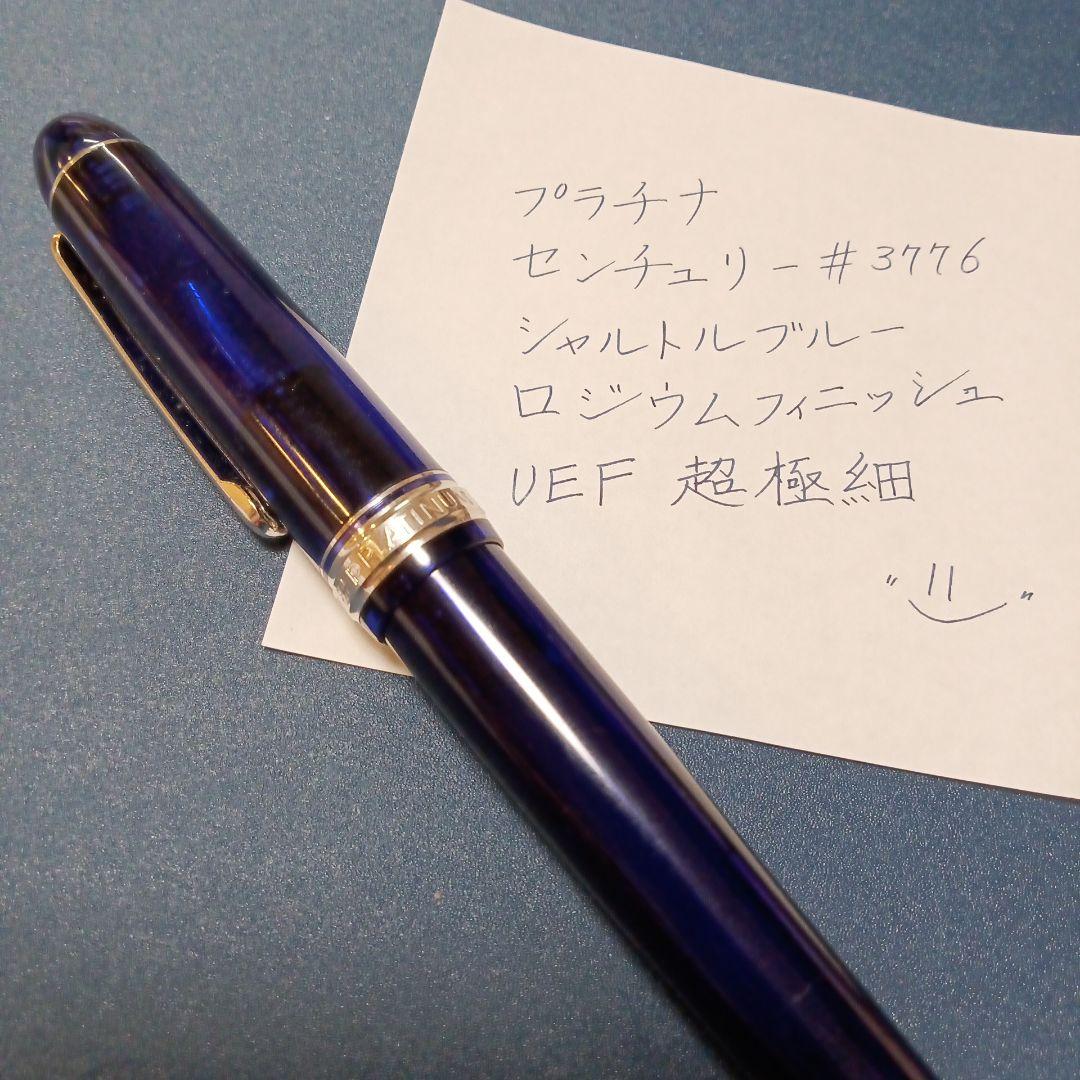 プラチナ
センチュリー#3776
シャルトルブルー
ロジウムフィニッシュ
UEF 超極細
PLATINUM